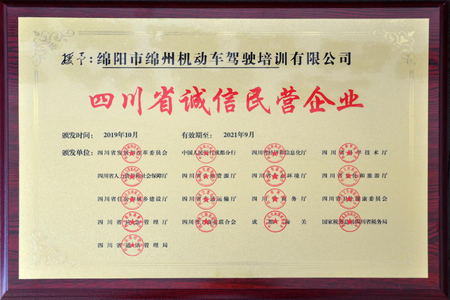 授予:绵阳市绵州机动车驾驶培训有限公司
四川省诚信民营企业
颁发时间: 2019年10月 有效期至: 2021年9月
颁发单位: 四川省发展和改革委员会 中国人民银行成都分行 四川省经济和信息化厅 四川省科学技术厅
四川省人力资源和社会保障厅 四川省自然资源厅 四川省生态环境厅
四川省住房和城乡建设厅 四川省交通运输厅 四川省商务厅 四川省卫生健康委员会
四川省应急管理厅 成都海关 国家税务总局四川省税务局